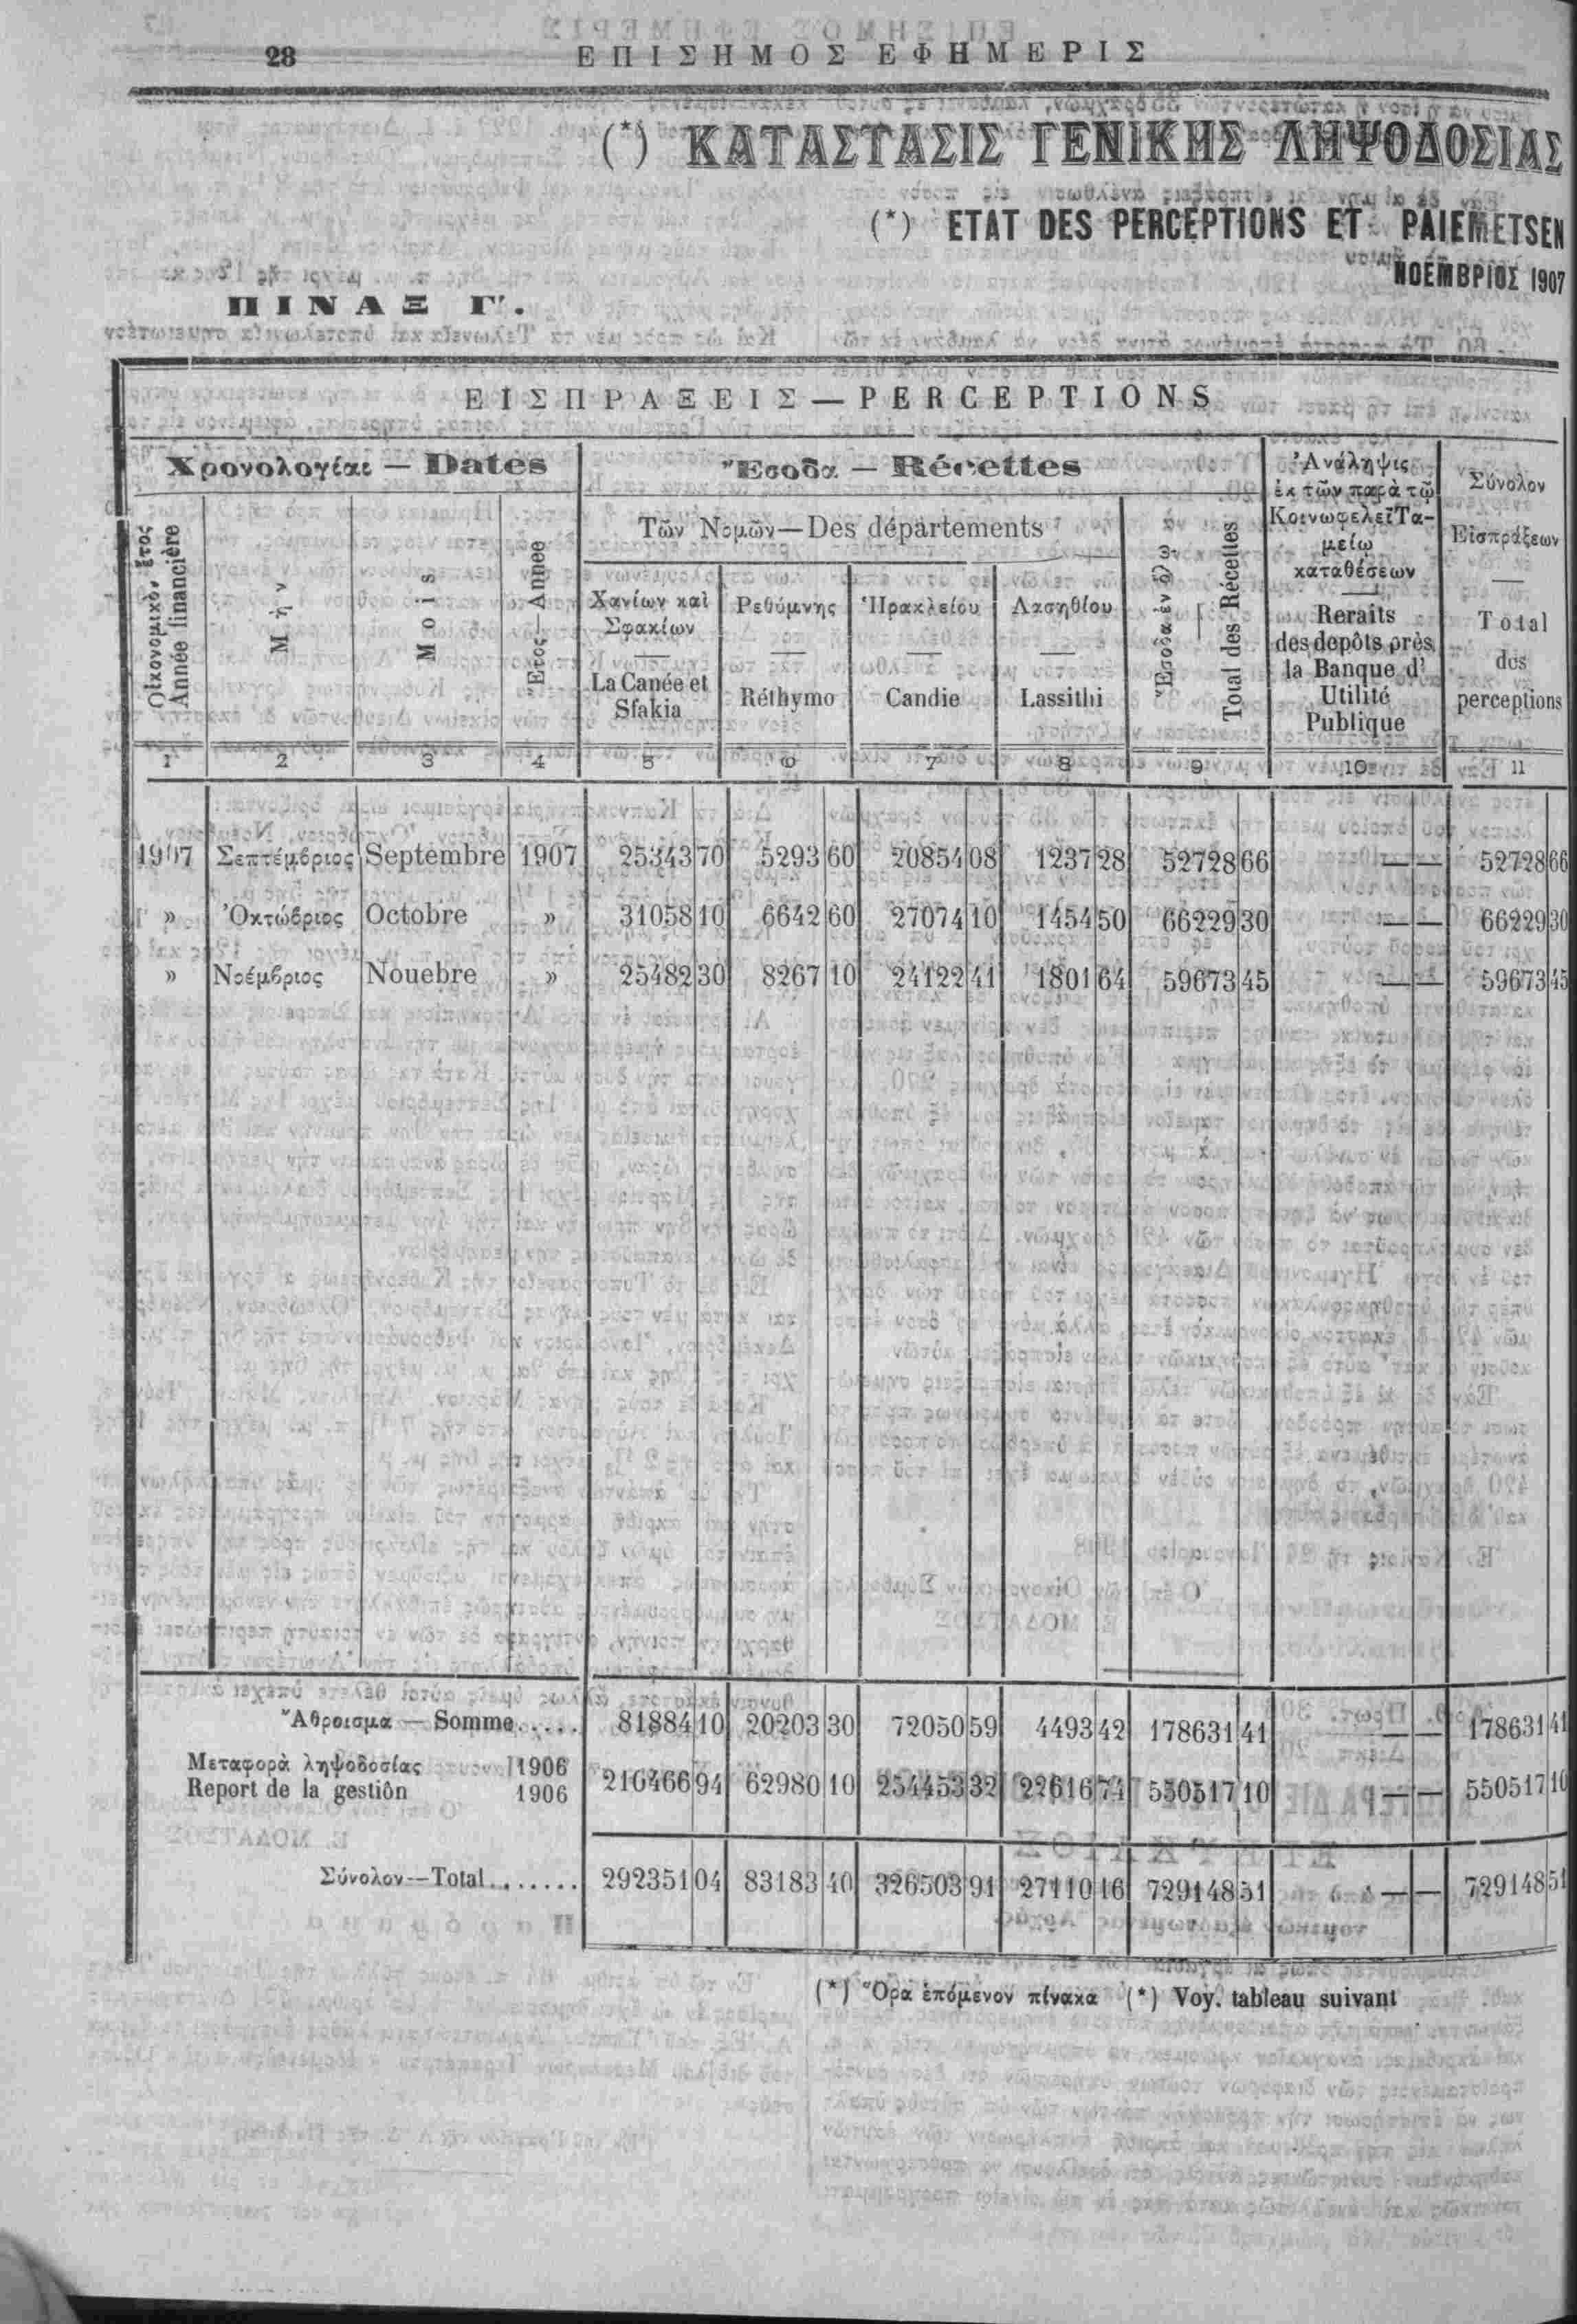 28 ΕΠΙΣΗΜΟΣ ΕΦΗΜΕΡΙΣ
(*) ΚΑΤΑΣΤΑΣΙΣ ΓΕΝΙΚΗΣ ΛΗΨΟΔΟΣΙΑΣ
(*) ETAT DES PERCEPTIONS ET PAIEMETSEN
ΝΟΕΜΒΡΙΟΣ 1907
ΠΙΝΑΞ Γ'.
ΕΙΣΠΡΑΞΕΙΣ — PERCEPTIONS
Χρονολογίαι — Dates
Οἰκονομικὸν ἔτος
Année financière
Μήν
Mois
Ἔτος — Annee
Ἔσοδα — Récettes
Τῶν Νομῶν—Des départements
Χανίων καὶ
Σφακίων
—
La Canée et
Sfakia
Ρεθύμνης
—
Réthymo
Ἡρακλείου
—
Candie
Λασηθίου
—
Lassithi
Ἔσοδα ἐν ὅλῳ
—
Total des Récettes
Ἀνάληψις
ἐκ τῶν παρὰ τῷ
Κοινωφελεῖ Τα-
μείῳ
καταθέσεων
—
Reraits
des depôts près
la Banque d'
Utilité
Publique
Σύνολον
Εἰσπράξεων
—
Total
des
perceptions
1 2 3 4 5 6 7 8 9 10 11
1907 Σεπτέμβριος Septembre 1907 25343 70 5293 60 20854 08 1237 28 52728 66 — — 52728 66
» Ὀκτώβριος Octobre » 31058 10 6642 60 27074 10 1454 50 66229 30 — — 66229 30
» Νοέμβριος Nouebre » 25482 30 8267 10 24122 41 1801 64 59673 45 — — 59673 45
Ἄθροισμα — Somme..... 81884 10 20203 30 72050 59 4493 42 178631 41 — — 178631 41
Μεταφορὰ ληψοδοσίας 1906
Report de la gestiôn 1906 210466 94 62980 10 254453 32 22616 74 550517 10 — — 550517 10
Σύνολον—Total....... 292351 04 83183 40 326503 91 27110 16 729148 51 — — 729148 51
(*) Ὅρα ἑπόμενον πίνακα (*) Voy. tableau suivant